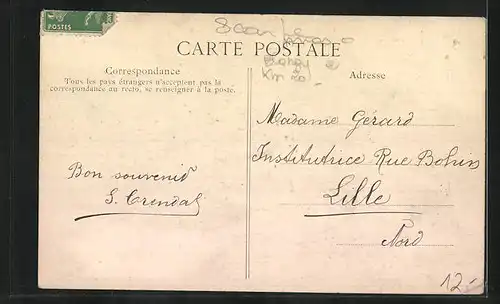 POSTES
CARTE POSTALE
Correspondance
Tous les pays étrangers n'acceptent pas la
correspondance au recto, se renseigner à la poste.
Adresse
Madame Gérard
Institutrice Rue Bohin
Lille
Nord
Bon souvenir
S.
12-